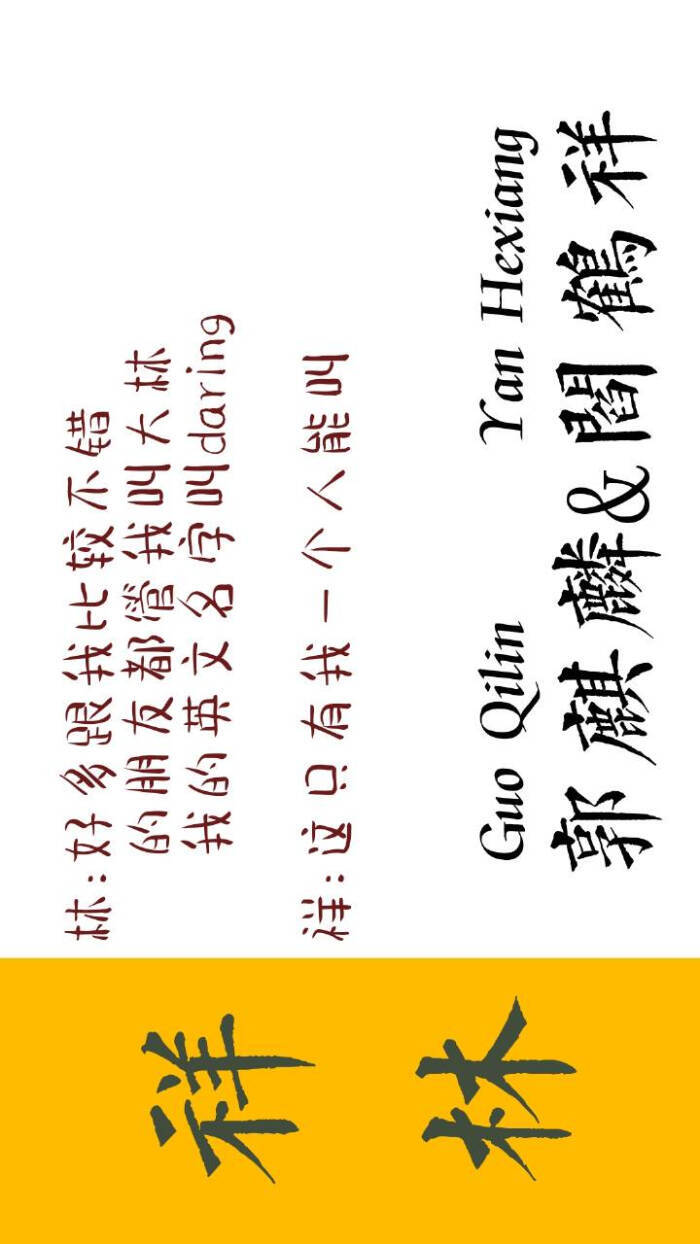 林:好多跟我比较不错
的朋友都管我叫大林
我的英文名字叫daring
祥:这只有我一个人能叫
Guo Qilin Yan Hexiang
郭麒麟&閻鶴祥
祥
林